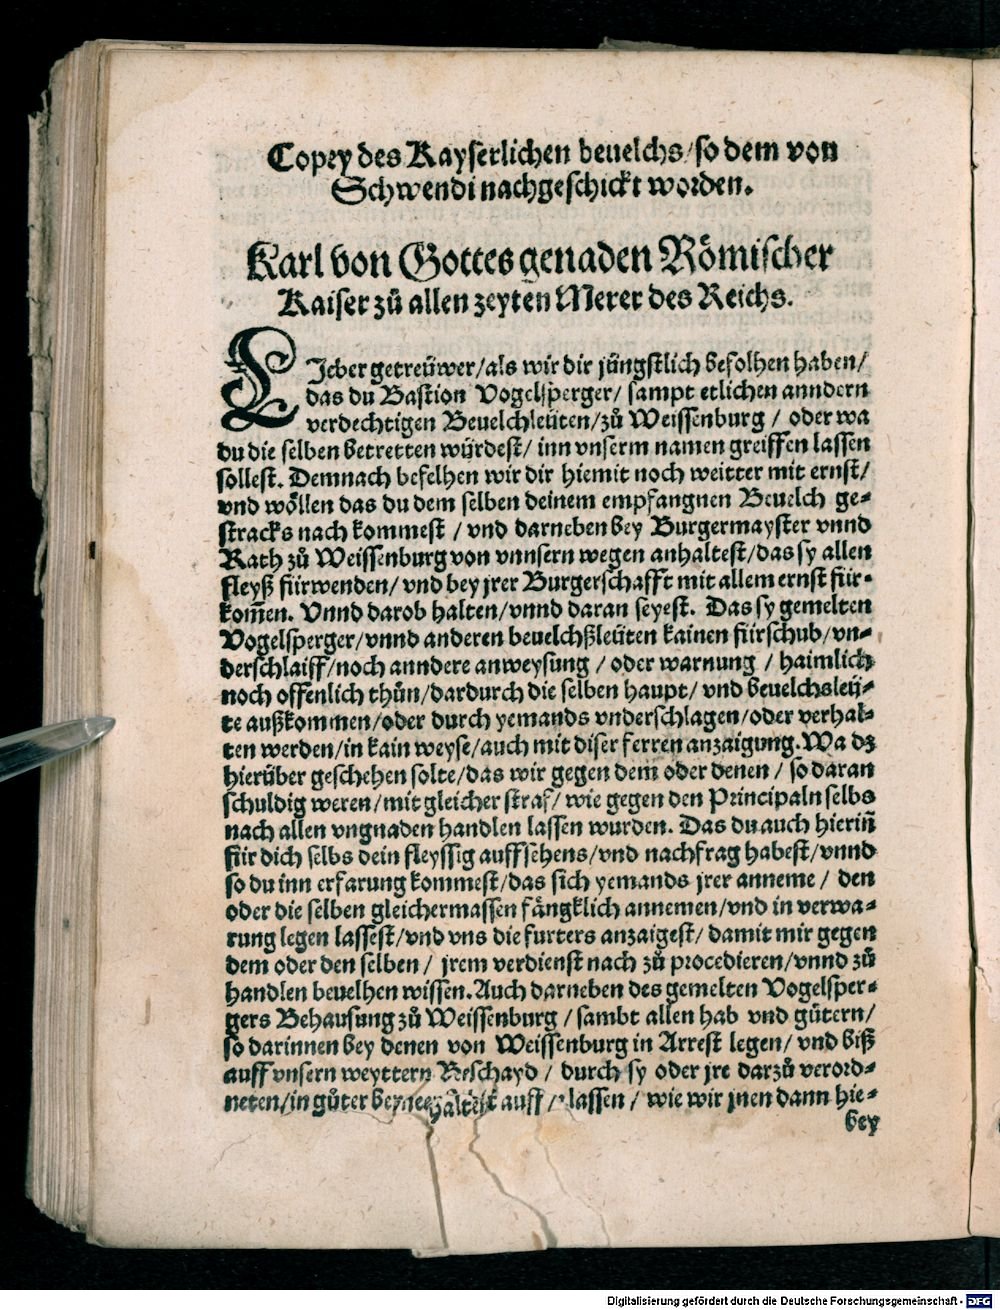 Copey des Kayserlichen beuelchs/ so dem von
Schwendi nachgeschickt worden.
Karl von Gottes genaden Römischer
Kaiser zů allen zeyten Merer des Reichs.
LJeber getreüwer/als wir dir jüngstlich befolhen haben/
das du Bastion Vogelsperger/ sampt etlichen anndern
verdechtigen Beuelchleüten/zů Weissenburg / oder wa
du die selben betretten würdest/ inn vnserm namen greiffen lassen
sollest. Demnach befelhen wir dir hiemit noch weitter mit ernst/
vnd wöllen das du dem selben deinem empfangnen Beuelch ge-
stracks nach kommest / vnd darneben bey Burgermayster vnnd
Rath zů Weissenburg von vnnsern wegen anhaltest/das sy allen
fleyß fürwenden/ vnd bey jrer Burgerschafft mit allem ernst für-
kom̃en. Vnnd darob halten/vnnd daran seyest. Das sy gemelten
Vogelsperger/vnnd anderen beuelchßleüten kainen fürschub/vn-
derschlaiff/noch anndere anweysung / oder warnung / haimlich
noch offenlich thůn/dardurch die selben haupt/ vnd beuelchsleü-
te außkommen/oder durch yemands vnderschlagen/oder verhal-
ten werden/in kain weyse/auch mit diser ferren anzaigung. Wa dz
hierüber geschehen solte/das wir gegen dem oder denen / so daran
schuldig weren/mit gleicher straf/ wie gegen den Principaln selbs
nach allen vngnaden handlen lassen wurden. Das du auch hierin̄
für dich selbs dein fleyssig auffsehens/vnd nachfrag habest/vnnd
so du inn erfarung kommest/das sich yemands jrer anneme / den
oder die selben gleichermassen fängklich annemen/vnd in verwa-
rung legen lassest/vnd vns die furters anzaigest/ damit mir gegen
dem oder den selben / jrem verdienst nach zů procedieren/vnnd zů
handlen beuelhen wissen. Auch darneben des gemelten Vogelsper-
gers Behausung zů Weissenburg / sambt allen hab vnd gütern/
so darinnen bey denen von Weissenburg in Arrest legen/ vnd biß
auff vnsern weyttern Beschayd / durch sy oder jre darzů verord-
neten/in gůter haltest auff / lassen / wie wir jnen dann hie-
bey
Digitalisierung gefördert durch die Deutsche Forschungsgemeinschaft - DFG